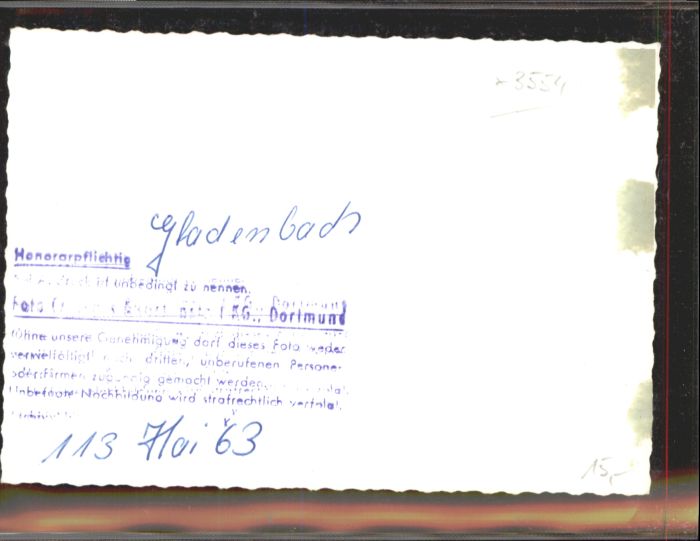 3554
Gladenbach
Honorarpflichtig
ist unbedingt zu nennen.
Foto AG., Dortmund
Ohne unsere Genehmigung darf dieses Foto weder
vervielfältigt noch dritten, unberufenen Personen
oder Firmen zugängig gemacht werden.
Unbefugte Nachbildung wird strafrechtlich verfolgt.
113 Mai 63
15,-